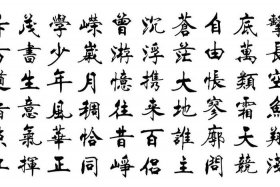 擊長空魚翔淺
底萬類霜天競
自由悵寥廓問
蒼茫大地誰主
沉浮携来百侶
曾游憶往昔崢
嶸歲月稠恰同
學少年風華正
茂書生意氣揮